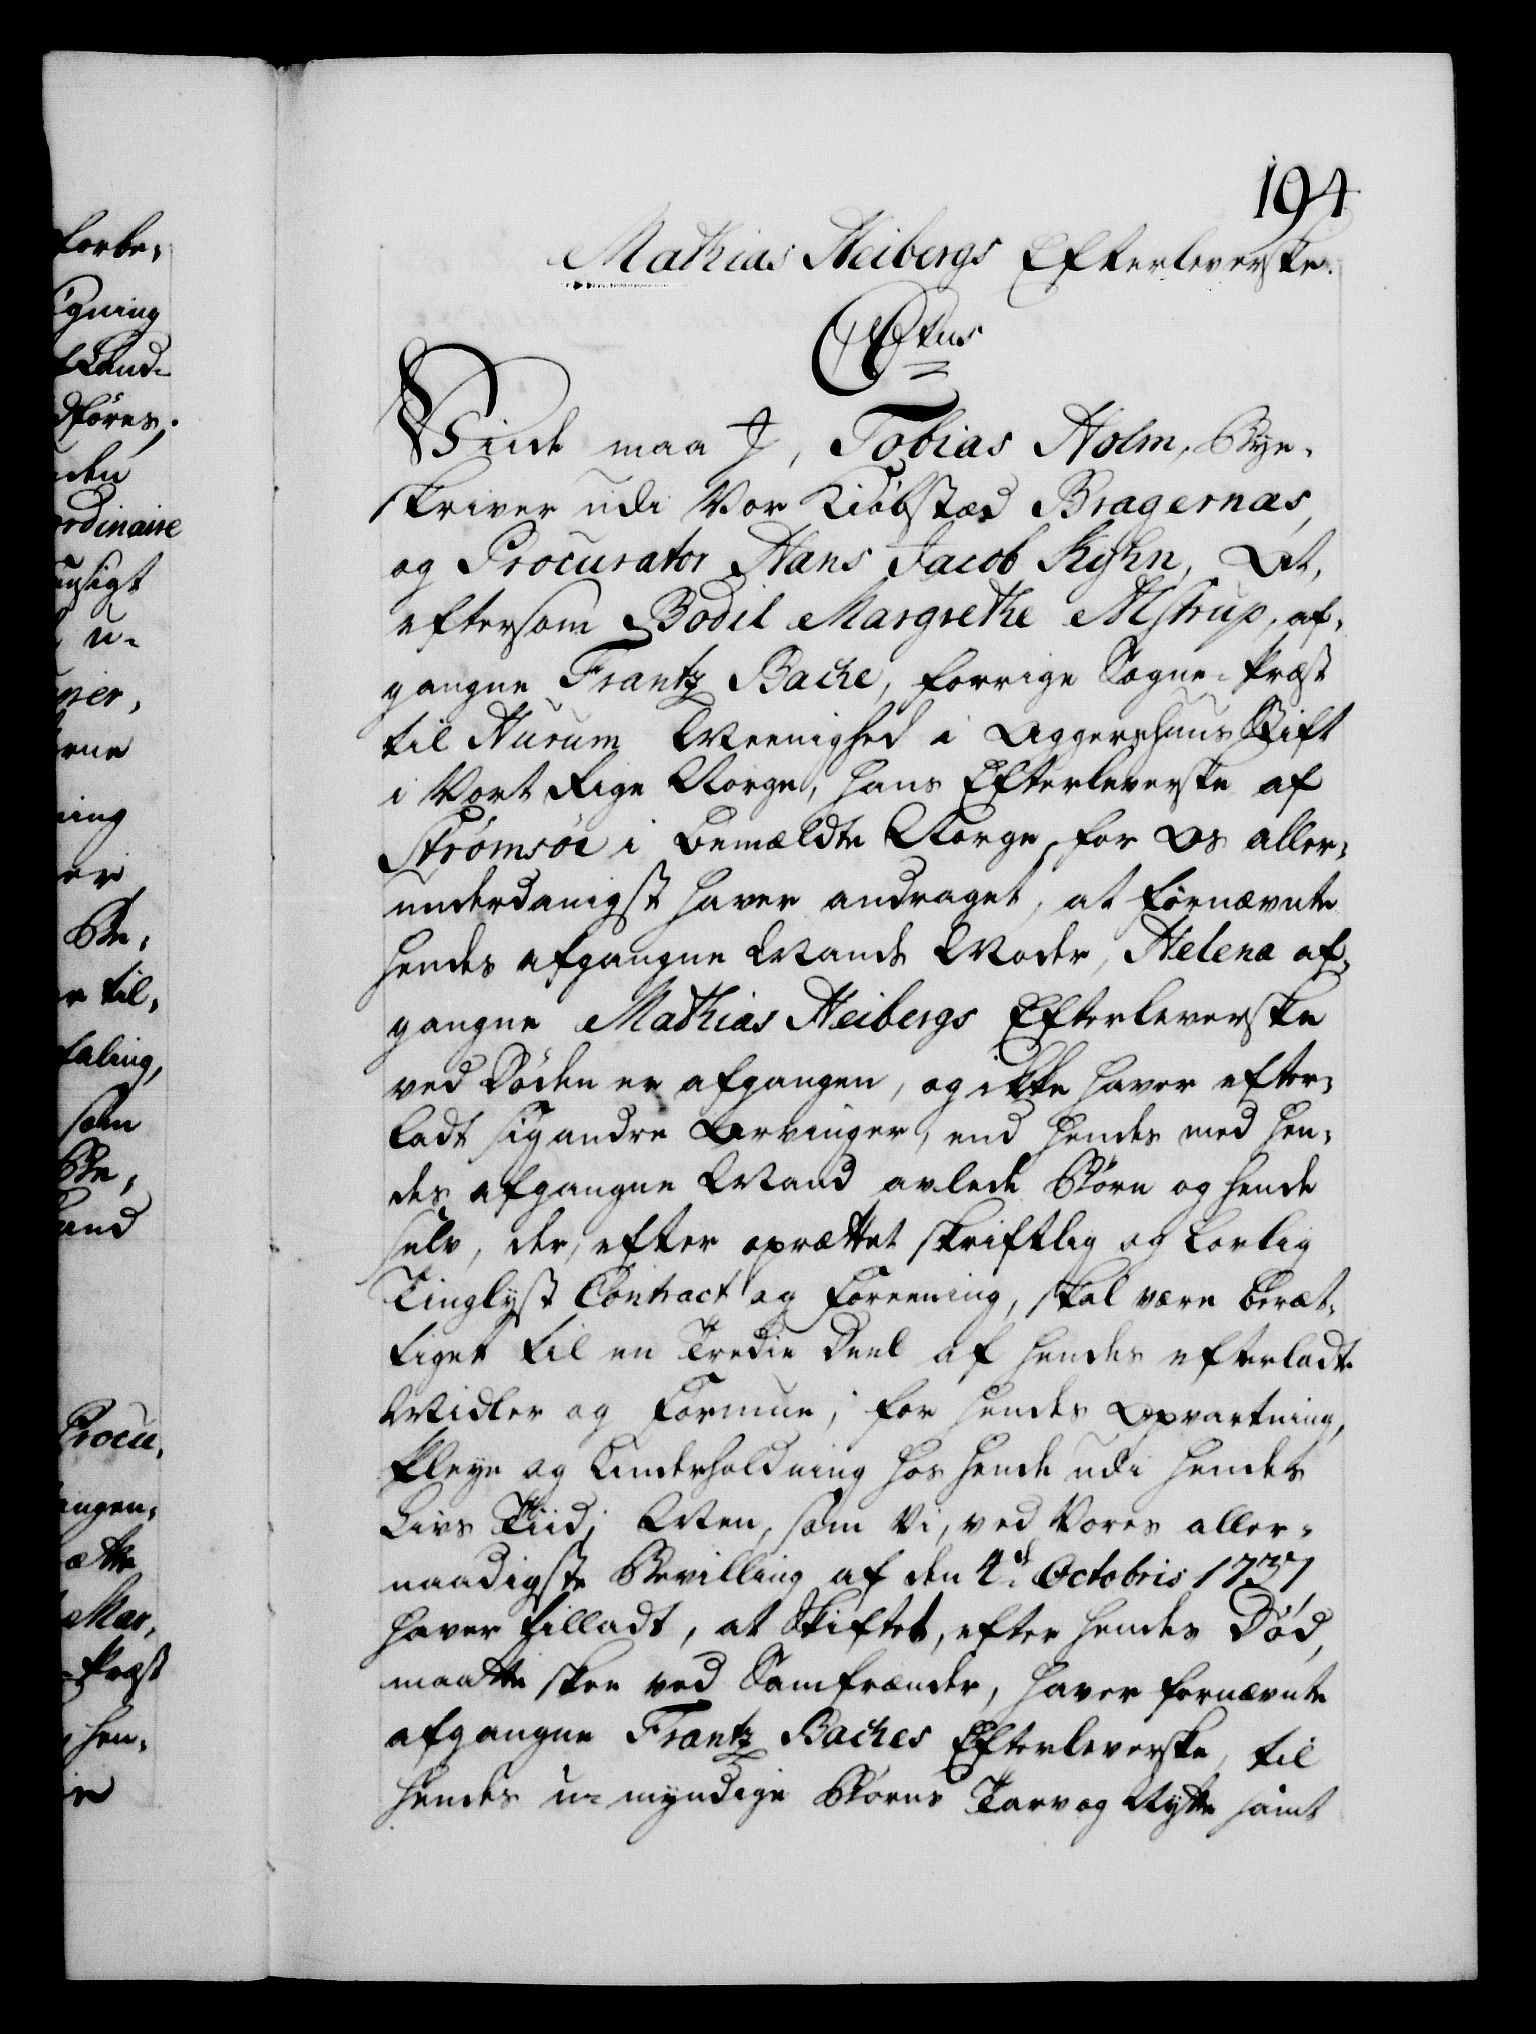 194
Mathias Heibergs Efterleverske.
CStus
Viide maa I, Tobias Holm, Bye-
skriver udi Vor Kiøbstæd Bragernæs,
og Procurator Hans Jacob Kyhn, At,
eftersom Bodil Margrethe Alstrup, af-
gangne Frantz Bache, forrige Sogne-Præst
til Hurum Meenighed i Aggershuus Stift
i Vort Rige Norge, hans Efterleverske af
Strømsøe i bemældte Norge, for Os aller-
underdanigst haver andraget, at fornævnte
hendes afgangne Mands Moder, Helena af-
gangne Mathias Heibergs Efterleverske
ved Døden er afgangen, og ikke haver efter-
ladt sig andre Arvinger, end hendes med hen-
des afgangne Mand avlede Børn og hende
selv, der, efter oprættet skriftlig og Lovlig
Tinglyst Contract og Foreening, skal være beræt-
tiget til en Tredie Deel af hendes efterladte
Midler og Formue, for hendes Opvartning,
Pleye og Underholdning hos hende udi hendes
Livs Tiid; Men, som Vi, ved Vores aller-
naadigste Bevilling af den 4de Octobris 1737
haver tilladt, at Skiftet, efter hendes Død,
maatte skee ved Samfrænder, haver fornævnte
afgangne Frantz Baches Efterleverske, til
hendes u-myndige Børns Tarv og Nytte samt
forbe-
igning
Land-
dføres,
den
ordinaire
u-
rne
ning
er
Be-
til-
taling,
som
Be-
Procu-
engen-
Mar-
Præst
hen-